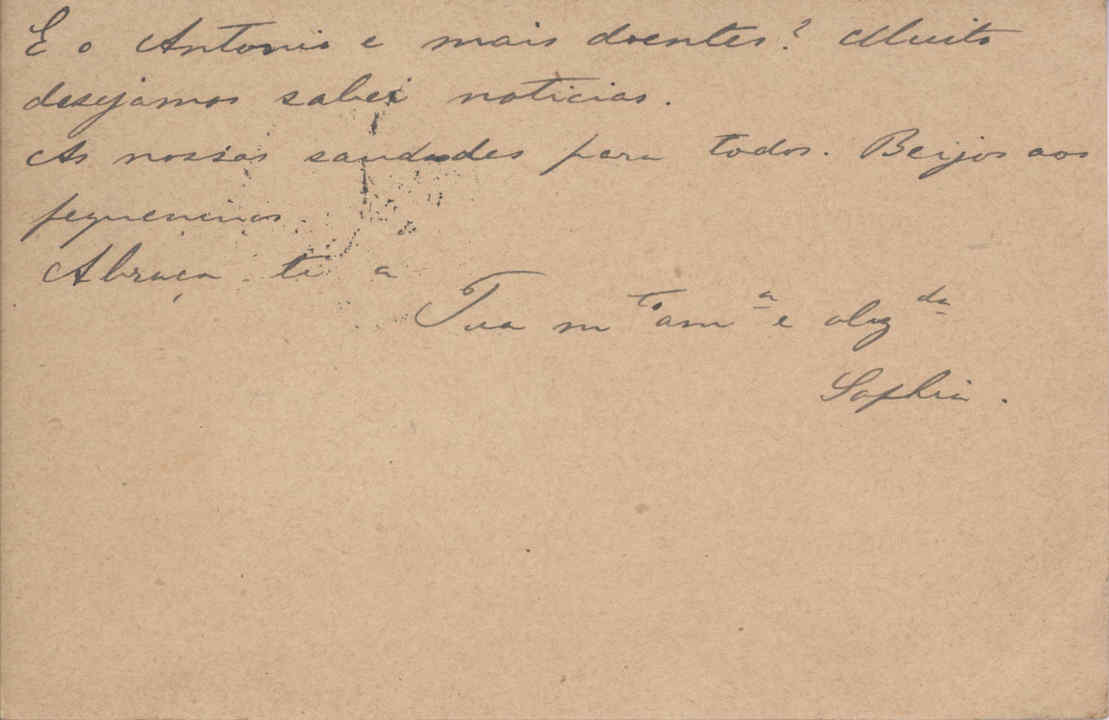 E o Antonio e mais doentes? Muito
desejamos saber noticias.
As nossas saudades para todos. Beijos aos
pequeninos.
Abraça-te a
Tua mto amа e obgda
Sophia.